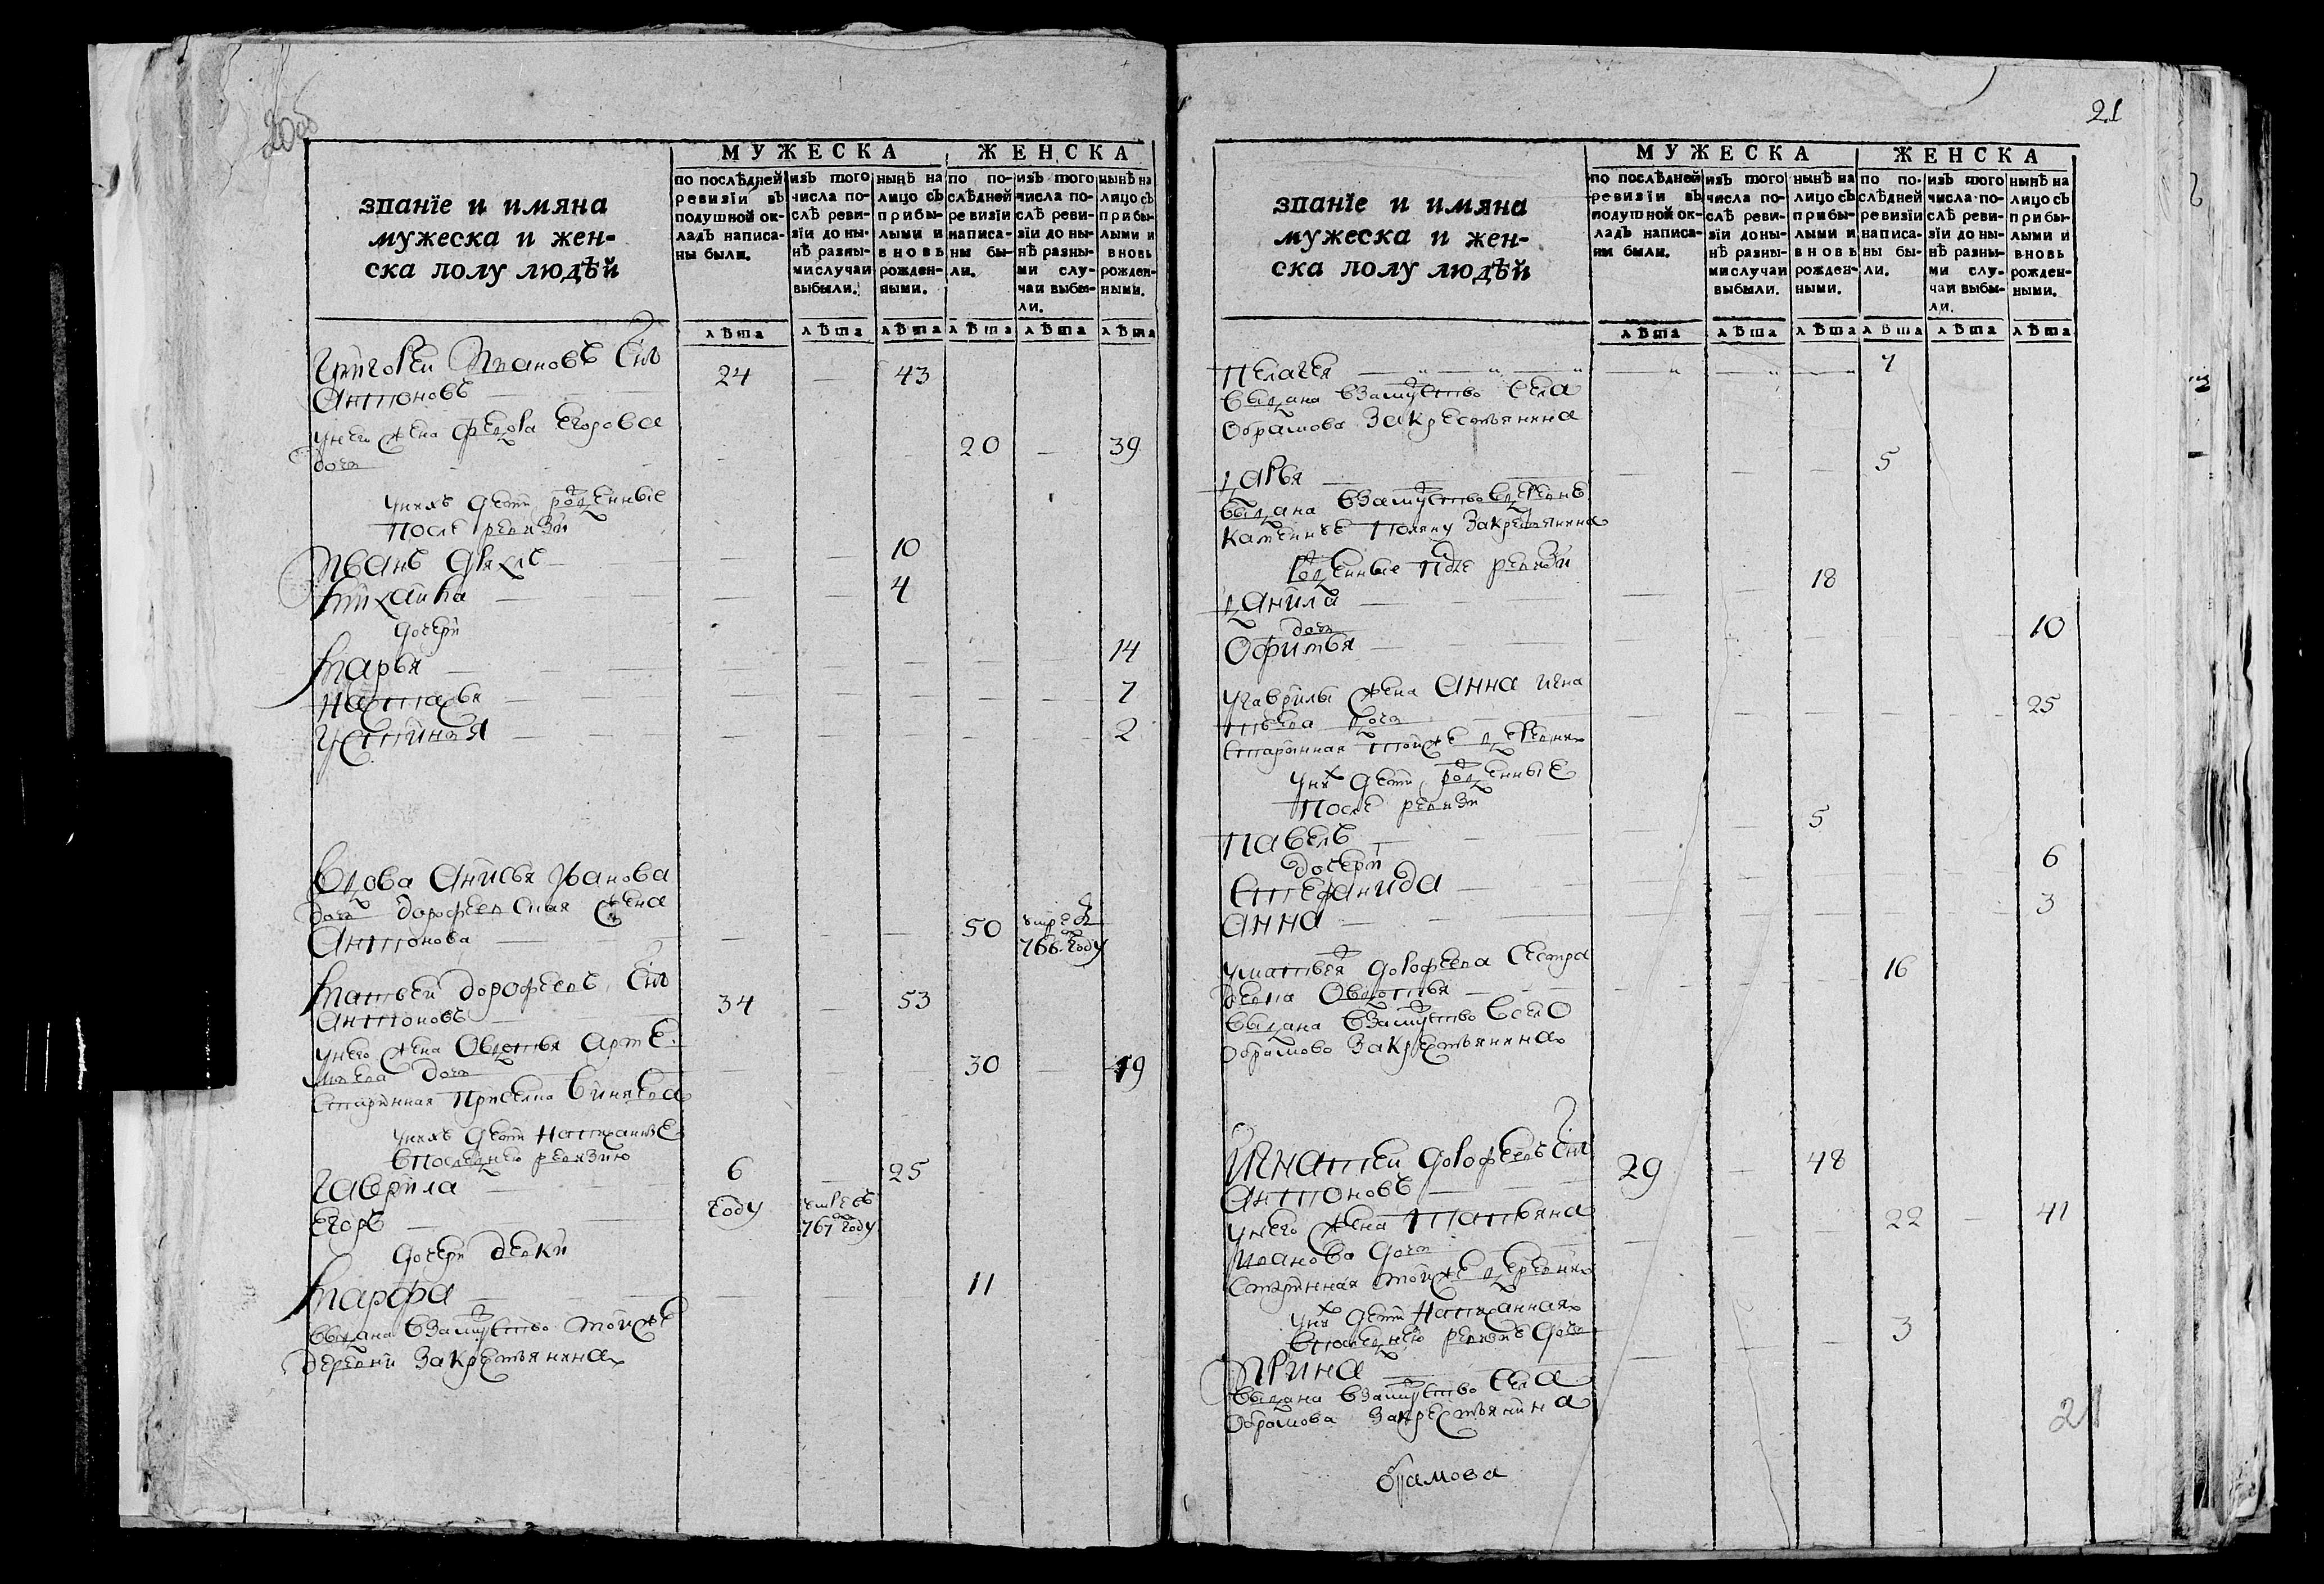 20об
МУЖЕСКА ЖЕНСКА
званїе и имяна
мужеска и жен-
ска полу людѣй
по послѣдней
ревизїи въ
подушной ок-
ладъ написа-
ны были.
изъ того
числа по-
слѣ реви-
зїи до ны-
нѣ разны-
ми случаи
выбыли.
нынѣ на
лицо съ
прибы-
лыми и
вновь
рожден-
ными.
по по-
слѣдней
ревизїи
написа-
ны бы-
ли.
изъ того
числа по-
слѣ реви-
зїи до ны-
нѣ разны-
ми слу-
чаи выбы-
ли.
нынѣ на
лицо съ
прибы-
лыми и
вновь
рожден-
ными.
лѣта лѣта лѣта лѣта лѣта лѣта
Григорей Ивановъ Снъ
Антоновъ 24 43
у него жена Федора Егорова
дочь 20 39
у нихъ дети рожденные
после ревизи
Иванъ 10
Михаила 4
дочери
Марья 14
Наталья 7
Устинья 2
Вдова Анисья Иванова
дочь Дорофеевская жена
Антонова 50 умре в
766 году
Матвей Дорофеевъ Снъ
Антоновъ 34 53
у него жена Овдотья Арте
мьева дочь 30 49
старинная
у нихъ дети написанные
в последнею ревизию
Гаврила 6 25
Егоръ году умре въ
767 году
дочери девки
Марфа 11
выдана в замужство той же
деревни за крестьянина
21
МУЖЕСКА ЖЕНСКА
званїе и имяна
мужеска и жен-
ска полу людѣй
по послѣдней
ревизїи въ
подушной ок-
ладъ написа-
ны были.
изъ того
числа по-
слѣ реви-
зїи до ны-
нѣ разны-
ми случаи
выбыли.
нынѣ на
лицо съ
прибы-
лыми и
вновь
рожден-
ными.
по по-
слѣдней
ревизїи
написа-
ны бы-
ли.
изъ того
числа по-
слѣ реви-
зїи до ны-
нѣ разны-
ми слу-
чаи выбы-
ли.
нынѣ на
лицо съ
прибы-
лыми и
вновь
рожден-
ными.
лѣта лѣта лѣта лѣта лѣта лѣта
Пелагея 7
выдана в замужство села
Обрамова за крестьянина
Дарья 5
выдана в замужство в деревню
Поляну за крестьянина
рожденные после ревизи
Данила 18
дочь
Офимья 10
у Гаврилы жена Анна Игна
тьева дочь 25
старинная той же деревни
у них дети рожденные
после ревизи
Павелъ 5
дочери
Степанида 6
Анна 3
у Матвея Дорофеева сестра
девка Овдотья 16
выдана в замужство в село
Обрамово за крестьянина
Игнатей Дорофеевъ Снъ
Антоновъ 29 48
у него жена Татьяна
Иванова дочь 22 41
старинная той же деревни
у них дети написанная
в последнею ревизию дочь
Ирина 3
выдана в замужство села
Обрамова за крестьянина
21
Обрамова